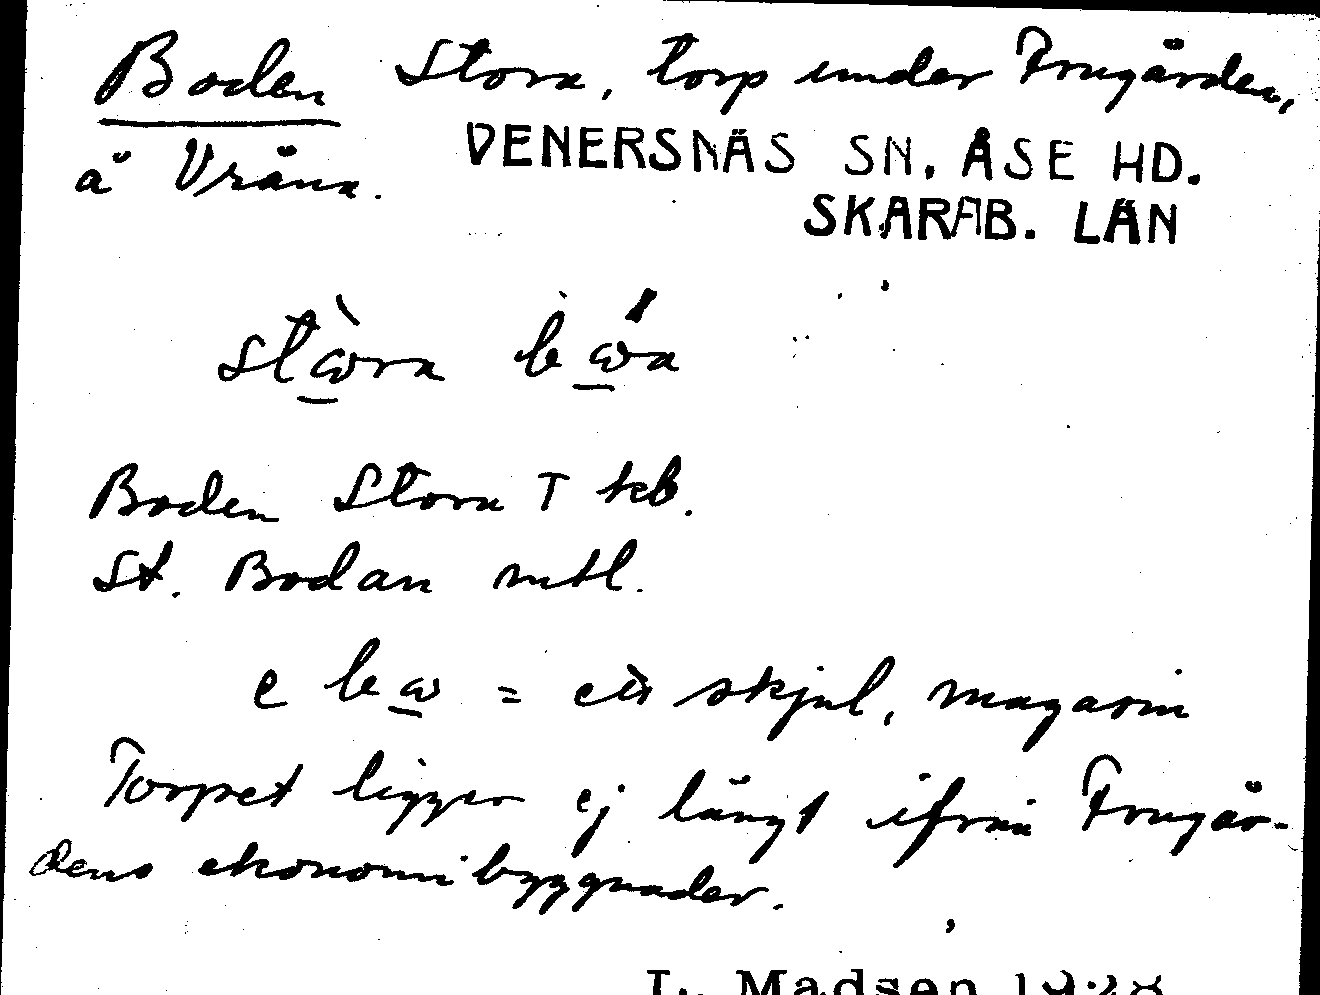 Boden Stora, torp under Frugården,
å Vråna. VENERSNÄS SN. ÅSE HD.
SKARAB. LÄN
Boden Stora T tcb.
St. Bodan mtl.
= ett skjul, magasin
Torpet ligger ej långt ifrån Frugår-
dens ekonomibyggnader.
L. Madsen 1928